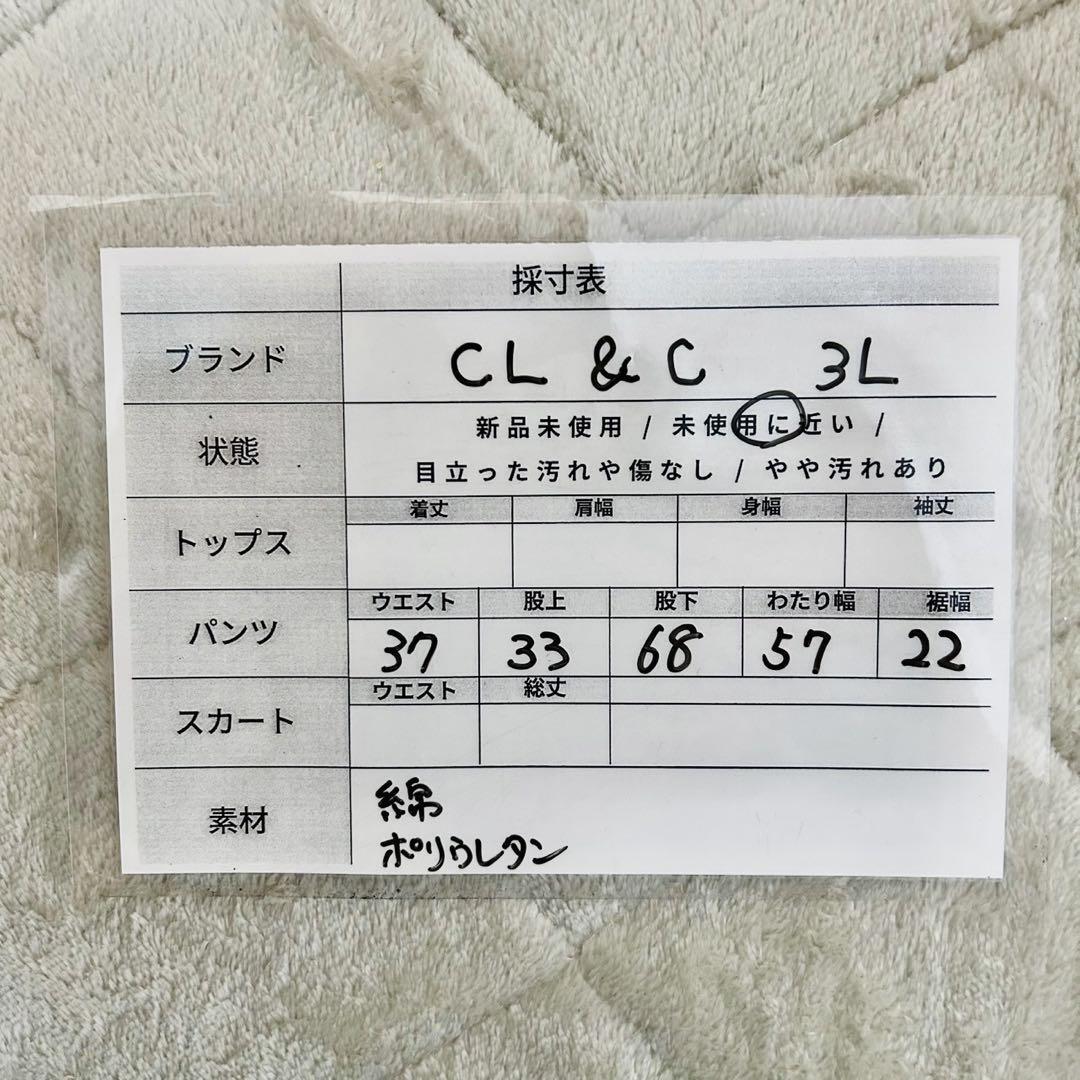 採寸表
ブランド CL & C 3L
状態 新品未使用 / 未使用に近い /
目立った汚れや傷なし / やや汚れあり
トップス 着丈 肩幅 身幅 袖丈
パンツ ウエスト 股上 股下 わたり幅 裾幅
37 33 68 57 22
スカート ウエスト 総丈
素材 綿
ポリウレタン